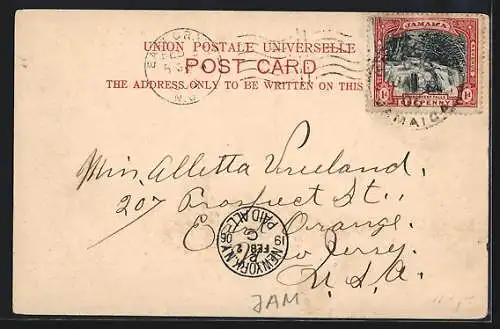 UNION POSTALE UNIVERSELLE
POST CARD
THE ADDRESS ONLY TO BE WRITTEN ON THIS
JAMAICA
1d ONE PENNY 1d
JAMAICA
EAST ORANGE
FEB
N.J.
Miss Alletta Vreeland.
207 Prospect St.,
East Orange.
New Jersey.
U.S.A.
NEW YORK, N.Y.
PAID ALL
19 06
FEB 2
JAM